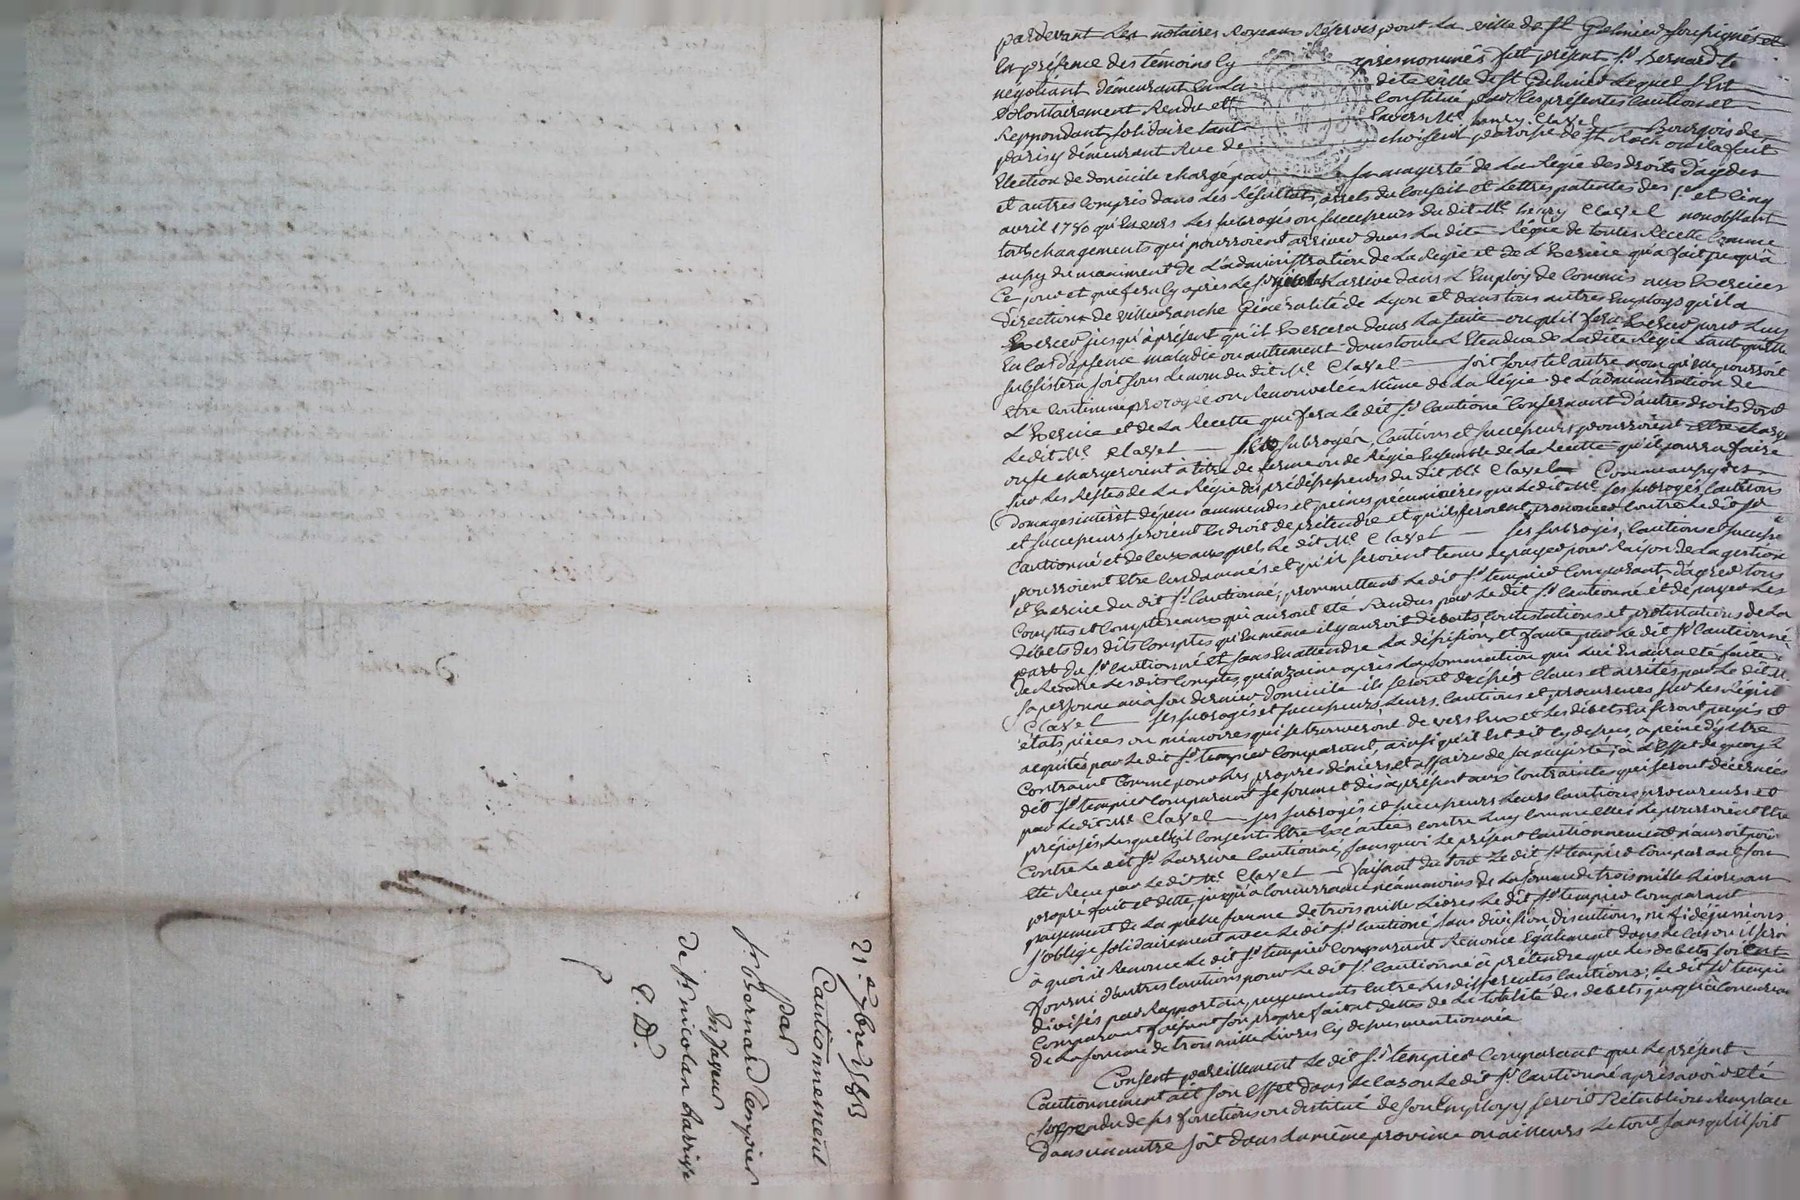 21e 7bre 1783
Cautionnement
par
Sr Bernard tempier
En faveur
de Sr nicolas barrive
E. D.
pardevant Les notaires Royeaux Réservés pour La ville de St Galmier soussignés et
En présence des témoins Cy apres nommés fut présent Sr Bernard te
négotiant démeurant En La dite ville de St Galmier Lequel s'est
volontairement Rendu et Constitué par Ces présentes Caution et
Reppondant, solidaire tant Envers Me henry Clavel Bourgois de
paris y démeurant Rue de choiseul paroisse de St Roch ou il a fait
Election de domicile chargé par sa majesté de La Régie des droits d'aydes
et autres Compris dans Les Résultats, arrets du Conseil et Lettres patentes des 1er et Cinq
avril 1780 qu'Envers Les subrogés ou successeurs du dit Me henry Clavel nonobstant
tous changements qui pourroient arriver dans La dite Régie de toutes Recette Comme
aussy du maniment de L'administration de La Régie et de L'Exercice qu'a fait jusqu'à
Ce jour et que fera Cy apres Le Sr Barrive dans L'Employ de Commis aux Exercices
direction de villefranche Généralité de Lyon et dans tous autres Employs qu'il a
Exercer jusqu'à présent qu'il Exercera dans La suite ou qu'il fera Exercer pour Luy
En Cas d'apsence maladie ou autrement dans toute L'Etendue de La dite Régie tant qu'elle
subsistera soit sous Le nom du dit Me Clavel soit sous tel autre nom qu'elle pourroit
Etre Continue prorogée ou Renouvelée même de La Régie de L'administration de
L'Exercice et de La Recette que fera Le dit Sr Cautioné Consernant d'autres droits dont
Le dit Me Clavel ses subrogés, Cautions et successeurs pourroient Etre charge
ou se chargeroient à titre de ferme ou de Régie Ensemble de La Recette qu'il pourra faire
sur Les Restes de La Régie des prédésesseurs du dit Me Clavel Comme aussy des
Domages interêt dépens ammendes et peines pécuniaires que Le dit Me ses subrogés Cautions
et successeurs seroient En droit de prétendre et qu'ils feroient prononcer Contre Le dit Sr
Cautionné et de Ceux auxquels Le dit Me Clavel ses subrogés, Cautions et succes
pourroient Etre Condamnés et qu'ils seroient tenus de payer pour Raison de La gestion
et Exercice du dit Sr Cautionné; promettant Le dit Sr tempier Comparant, d'agréer tous
Comptes et Comptereaux qui auront été Rendus par Le dit Sr Cautionné et de payer Les
débets des dits Comptes qu'En même il y auroit débats, Contestations et protestations de La
part du Sr Cautionné et sans En attendre La déssision, et faute par Le dit Sr Cautionné
de Rendre Les dits Comptes quinzaine après La sommation qui Lui En aura Eté faite à
sa personne ou à son dernier domicile ils seront dressés Clans et arrêtés par Le dit Me
Clavel ses subrogés et successeurs, Leurs Cautions et procureurs sur Les Régist
états, pièces ou mémoires qui se trouveront de vers Eux et Les débets En seront payés et
acquités par Le dit Sr tempier Comparant, ainsi qu'il Est dit Cy dessus, à peine d'y Etre
Contraint Comme pour Les propres déniers et affaires de sa majesté; à L'Effet de quoy Le
dit Sr tempier Comparant se soumet dès à présent aux Contraintes qui seront décernées
par Le dit Me Clavel ses subrogés et successeurs Leurs Cautions procureurs et
préposés, Lesquelles il Consent Etre Exécutées Contre Luy Comme Elles Le pourroient Etre
Contre Le dit Sr Barrive Cautionné, sans quoi Le présent Cautionnement n'auroit point
Eté Recu par Le dit Me Clavel Faisant du tout Le dit Sr tempier Comparant son
propre fait et dette, jusqu'a Concurrance néammoins de La somme de trois mille Livres au
payement de La quelle somme de trois mille Livres Le dit Sr tempier Comparant
s'oblige solidairement avec Le dit Sr Cautioné sans division, discution, ni fidéjussion
à quoi il Renonce Le dit Sr tempier Comparant Renonce Egalement dans Le Cas ou il seroi
fourni d'autres Cautions pour Le dit Sr Cautionné à prétendre que Les débets soient
divisés par Rapport au payements Entre Les differentes Cautions; Le dit Sr tempie
Comparant faisant son propre fait et dette de La totalité des débets jusqu'à Concurran
de La somme de trois mille Livres Cy dessus mentionnée
Consent pareillement Le dit Sr tempier Comparant que Le présent
Cautionnement ait son Effet dans Le Cas ou Le dit Sr Cautionné après avoir Eté
suspendu de ses fonctions ou destitué de son Employ y seroit Rétabli ou Remplacé
dans un autre soit dans La même province ou ailleurs Le tout sans qu'il soit